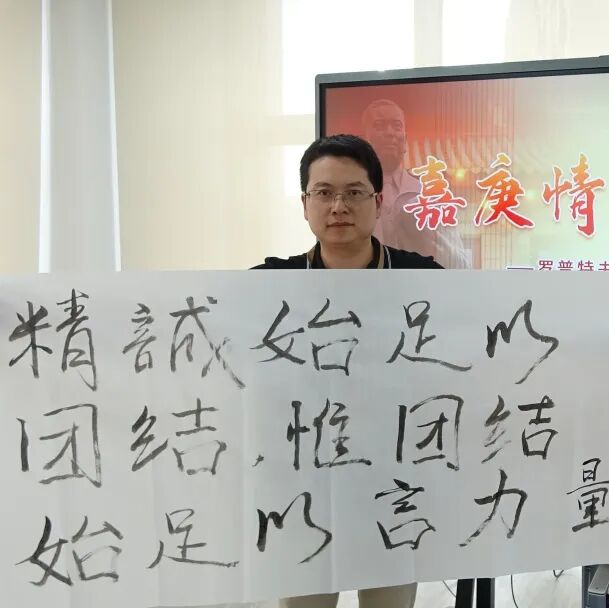 嘉庚情
——罗普特夫
精誠始足以
团结,惟团结
始足以言力量